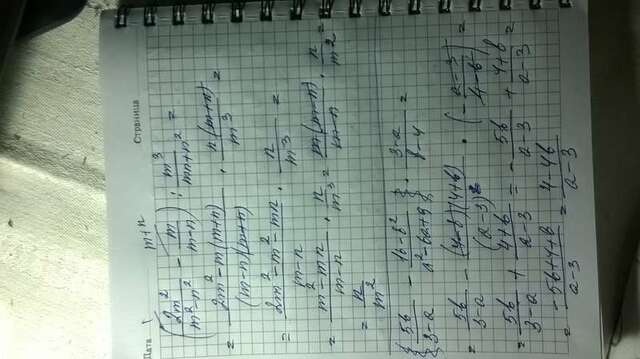 Дата Страница
1 (2m²/(m²-n²) - m/(m-n)) m+n : m³/(mn+n²) =
= (2m²-m(m+n))/((m-n)(m+n)) · n(m+n)/m³ =
= (2m²-m²-mn)/(m-n) · n/m³ =
= (m²-mn)/(m-n) · n/m³ = m(m-n)/(m-n) · n/m² =
= n/m²
{5b/(3-a) - (16-b²)/(a²-6a+9)} · (3-a)/(b-4) =
= 5b/(3-a) - (4-b)(4+b)/(a-3)² · (-(a-3)/(4-b)) =
= 5b/(3-a) + (4+b)/(a-3) = -5b/(a-3) + (4+b)/(a-3) =
= (-5b+4+b)/(a-3) = (4-4b)/(a-3)